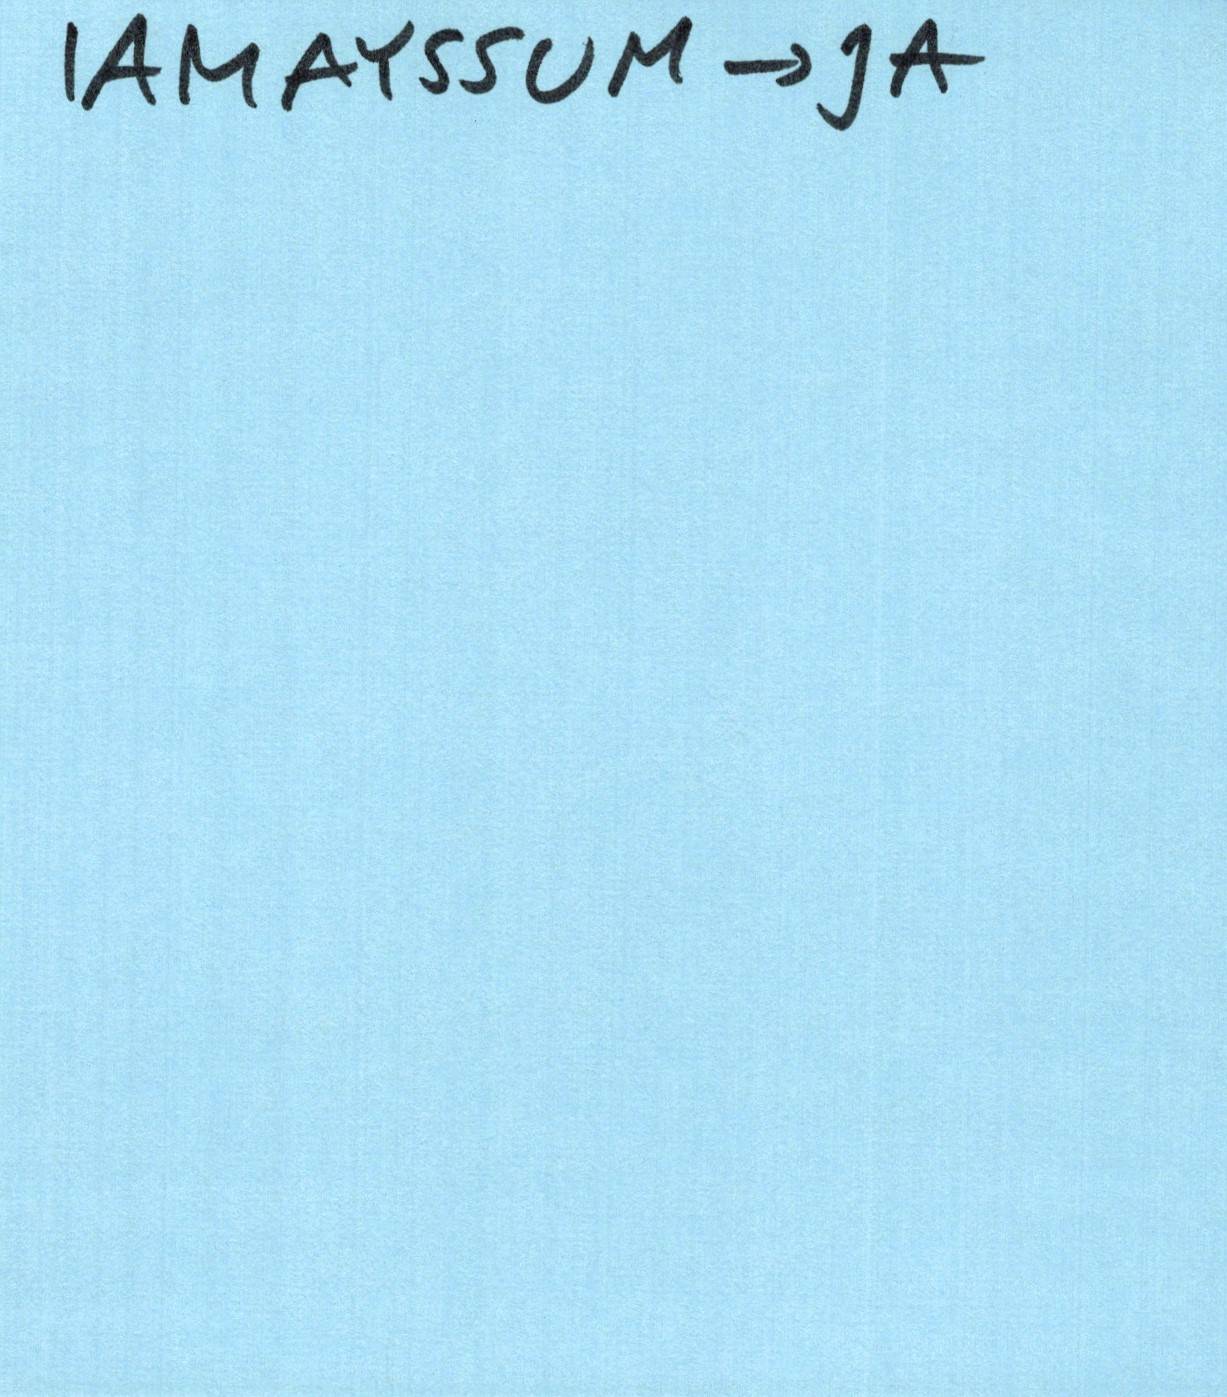 IAMAYSSUM → JA